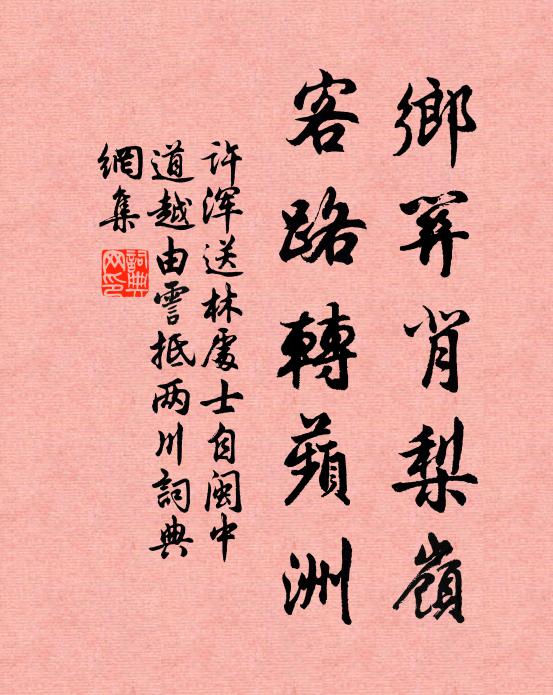 鄉關背梨嶺
客路轉蘋洲
許渾送林處士自閩中
道越由霅抵两川詞典
網集
詞典網印